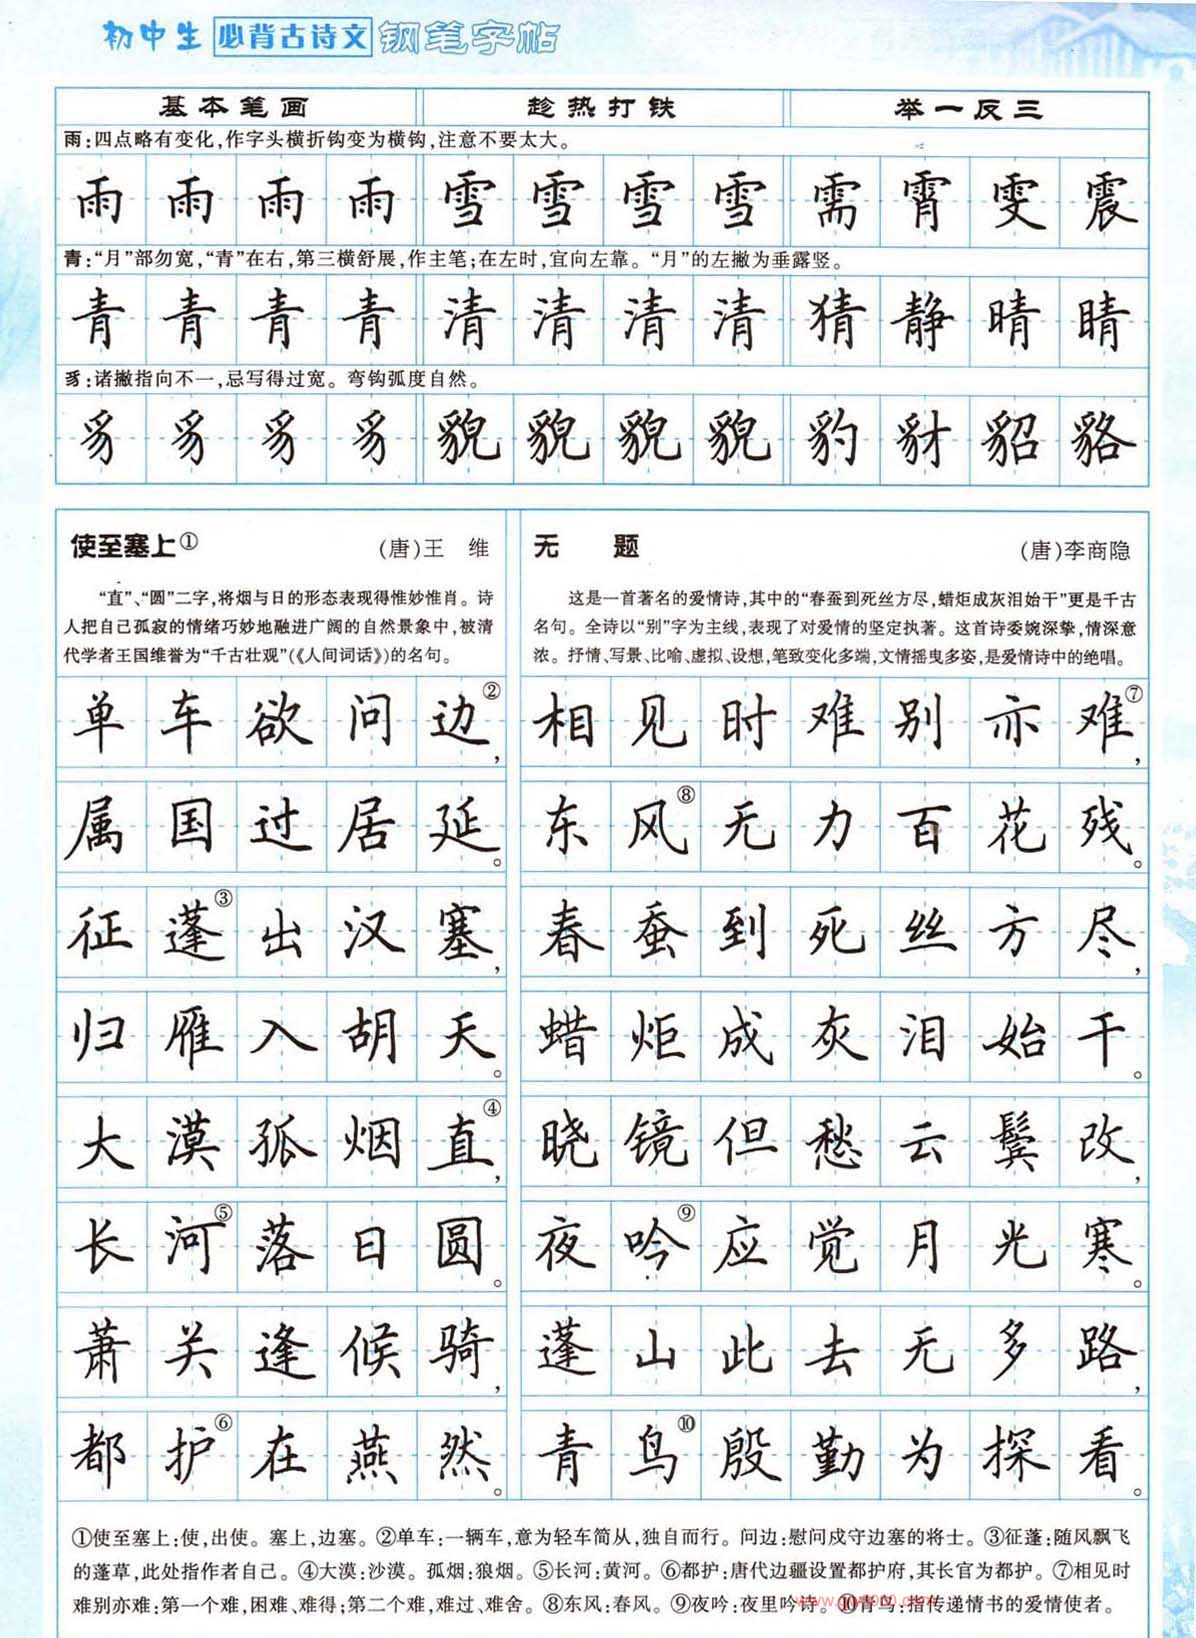 初中生 必背古诗文 钢笔字帖
基本笔画 趁热打铁 举一反三
雨:四点略有变化,作字头横折钩变为横钩,注意不要太大。
雨 雨 雨 雨 雪 雪 雪 雪 需 霄 雯 震
青:“月”部勿宽,“青”在右,第三横舒展,作主笔;在左时,宜向左靠。“月”的左撇为垂露竖。
青 青 青 青 清 清 清 清 猜 静 晴 睛
豸:诸撇指向不一,忌写得过宽。弯钩弧度自然。
豸 豸 豸 豸 貌 貌 貌 貌 豹 豺 貂 貉
使至塞上①
(唐)王 维
“直”、“圆”二字,将烟与日的形态表现得惟妙惟肖。诗
人把自己孤寂的情绪巧妙地融进广阔的自然景象中,被清
代学者王国维誉为“千古壮观”(《人间词话》)的名句。
单车欲问边②,
属国过居延。
征蓬③出汉塞,
归雁入胡天。
大漠孤烟直④,
长河⑤落日圆。
萧关逢候骑,
都护⑥在燕然。
无 题
(唐)李商隐
这是一首著名的爱情诗,其中的“春蚕到死丝方尽,蜡炬成灰泪始干”更是千古
名句。全诗以“别”字为主线,表现了对爱情的坚定执著。这首诗委婉深挚,情深意
浓。抒情、写景、比喻、虚拟、设想,笔致变化多端,文情摇曳多姿,是爱情诗中的绝唱。
相见时难别亦难⑦,
东风⑧无力百花残。
春蚕到死丝方尽,
蜡炬成灰泪始干。
晓镜但愁云鬓改,
夜吟⑨应觉月光寒。
蓬山此去无多路,
青鸟⑩殷勤为探看。
①使至塞上:使,出使。塞上,边塞。②单车:一辆车,意为轻车简从,独自而行。问边:慰问戍守边塞的将士。③征蓬:随风飘飞
的蓬草,此处指作者自己。④大漠:沙漠。孤烟:狼烟。⑤长河:黄河。⑥都护:唐代边疆设置都护府,其长官为都护。⑦相见时
难别亦难:第一个难,困难、难得;第二个难,难过、难舍。⑧东风:春风。⑨夜吟:夜里吟诗。⑩青鸟:指传递情书的爱情使者。